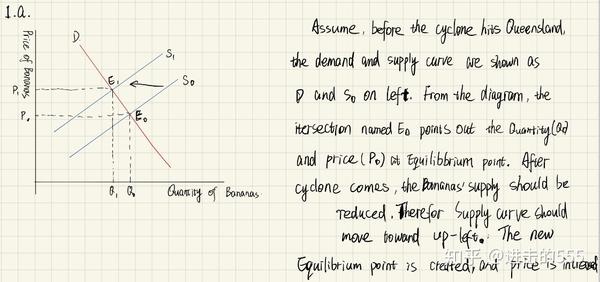 1.a.
Price of Bananas
D
S1
S0
E1
E0
P1
P0
Q1 Q0 Quantity of Bananas
Assume, before the cyclone hits Queensland,
the demand and supply curve are shown as
D and S0 on left. From the diagram, the
itersection named E0 points out the Quantity(Q0)
and price(P0) at Equilibbrium point. After
cyclone comes, the Bananas' supply should be
reduced. Therefor Supply curve should
move toward up-left. The new
Equilibrium point is created, and price is incresed
知乎 @进击的555